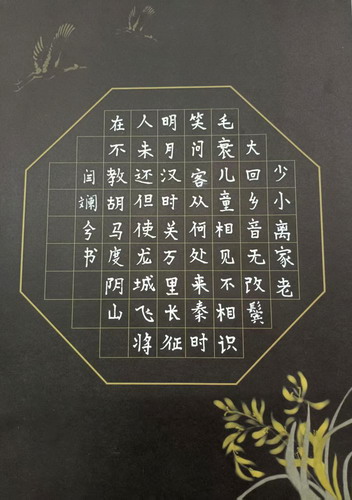 少小离家老
大回乡音无改鬓
毛衰儿童相见不相识
笑问客从何处来秦时
明月汉时关万里长征
人未还但使龙城飞将
在不教胡马度阴山
闫澜兮书